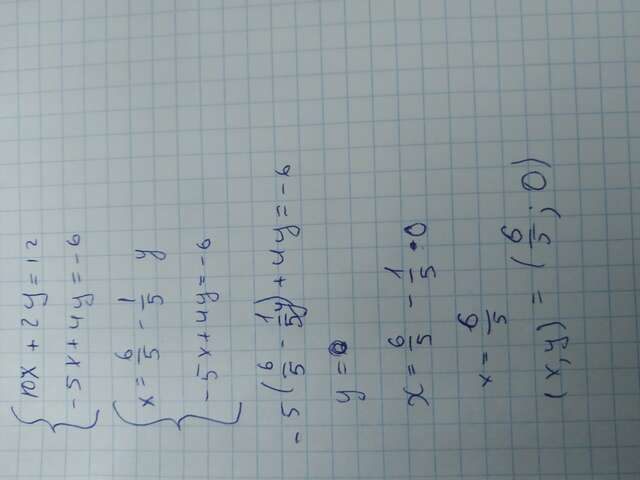 10x + 2y = 12
-5x + 4y = -6
x = 6/5 - 1/5 y
-5x + 4y = -6
-5(6/5 - 1/5y) + 4y = -6
y = 0
x = 6/5 - 1/5 · 0
x = 6/5
(x, y) = (6/5; 0)